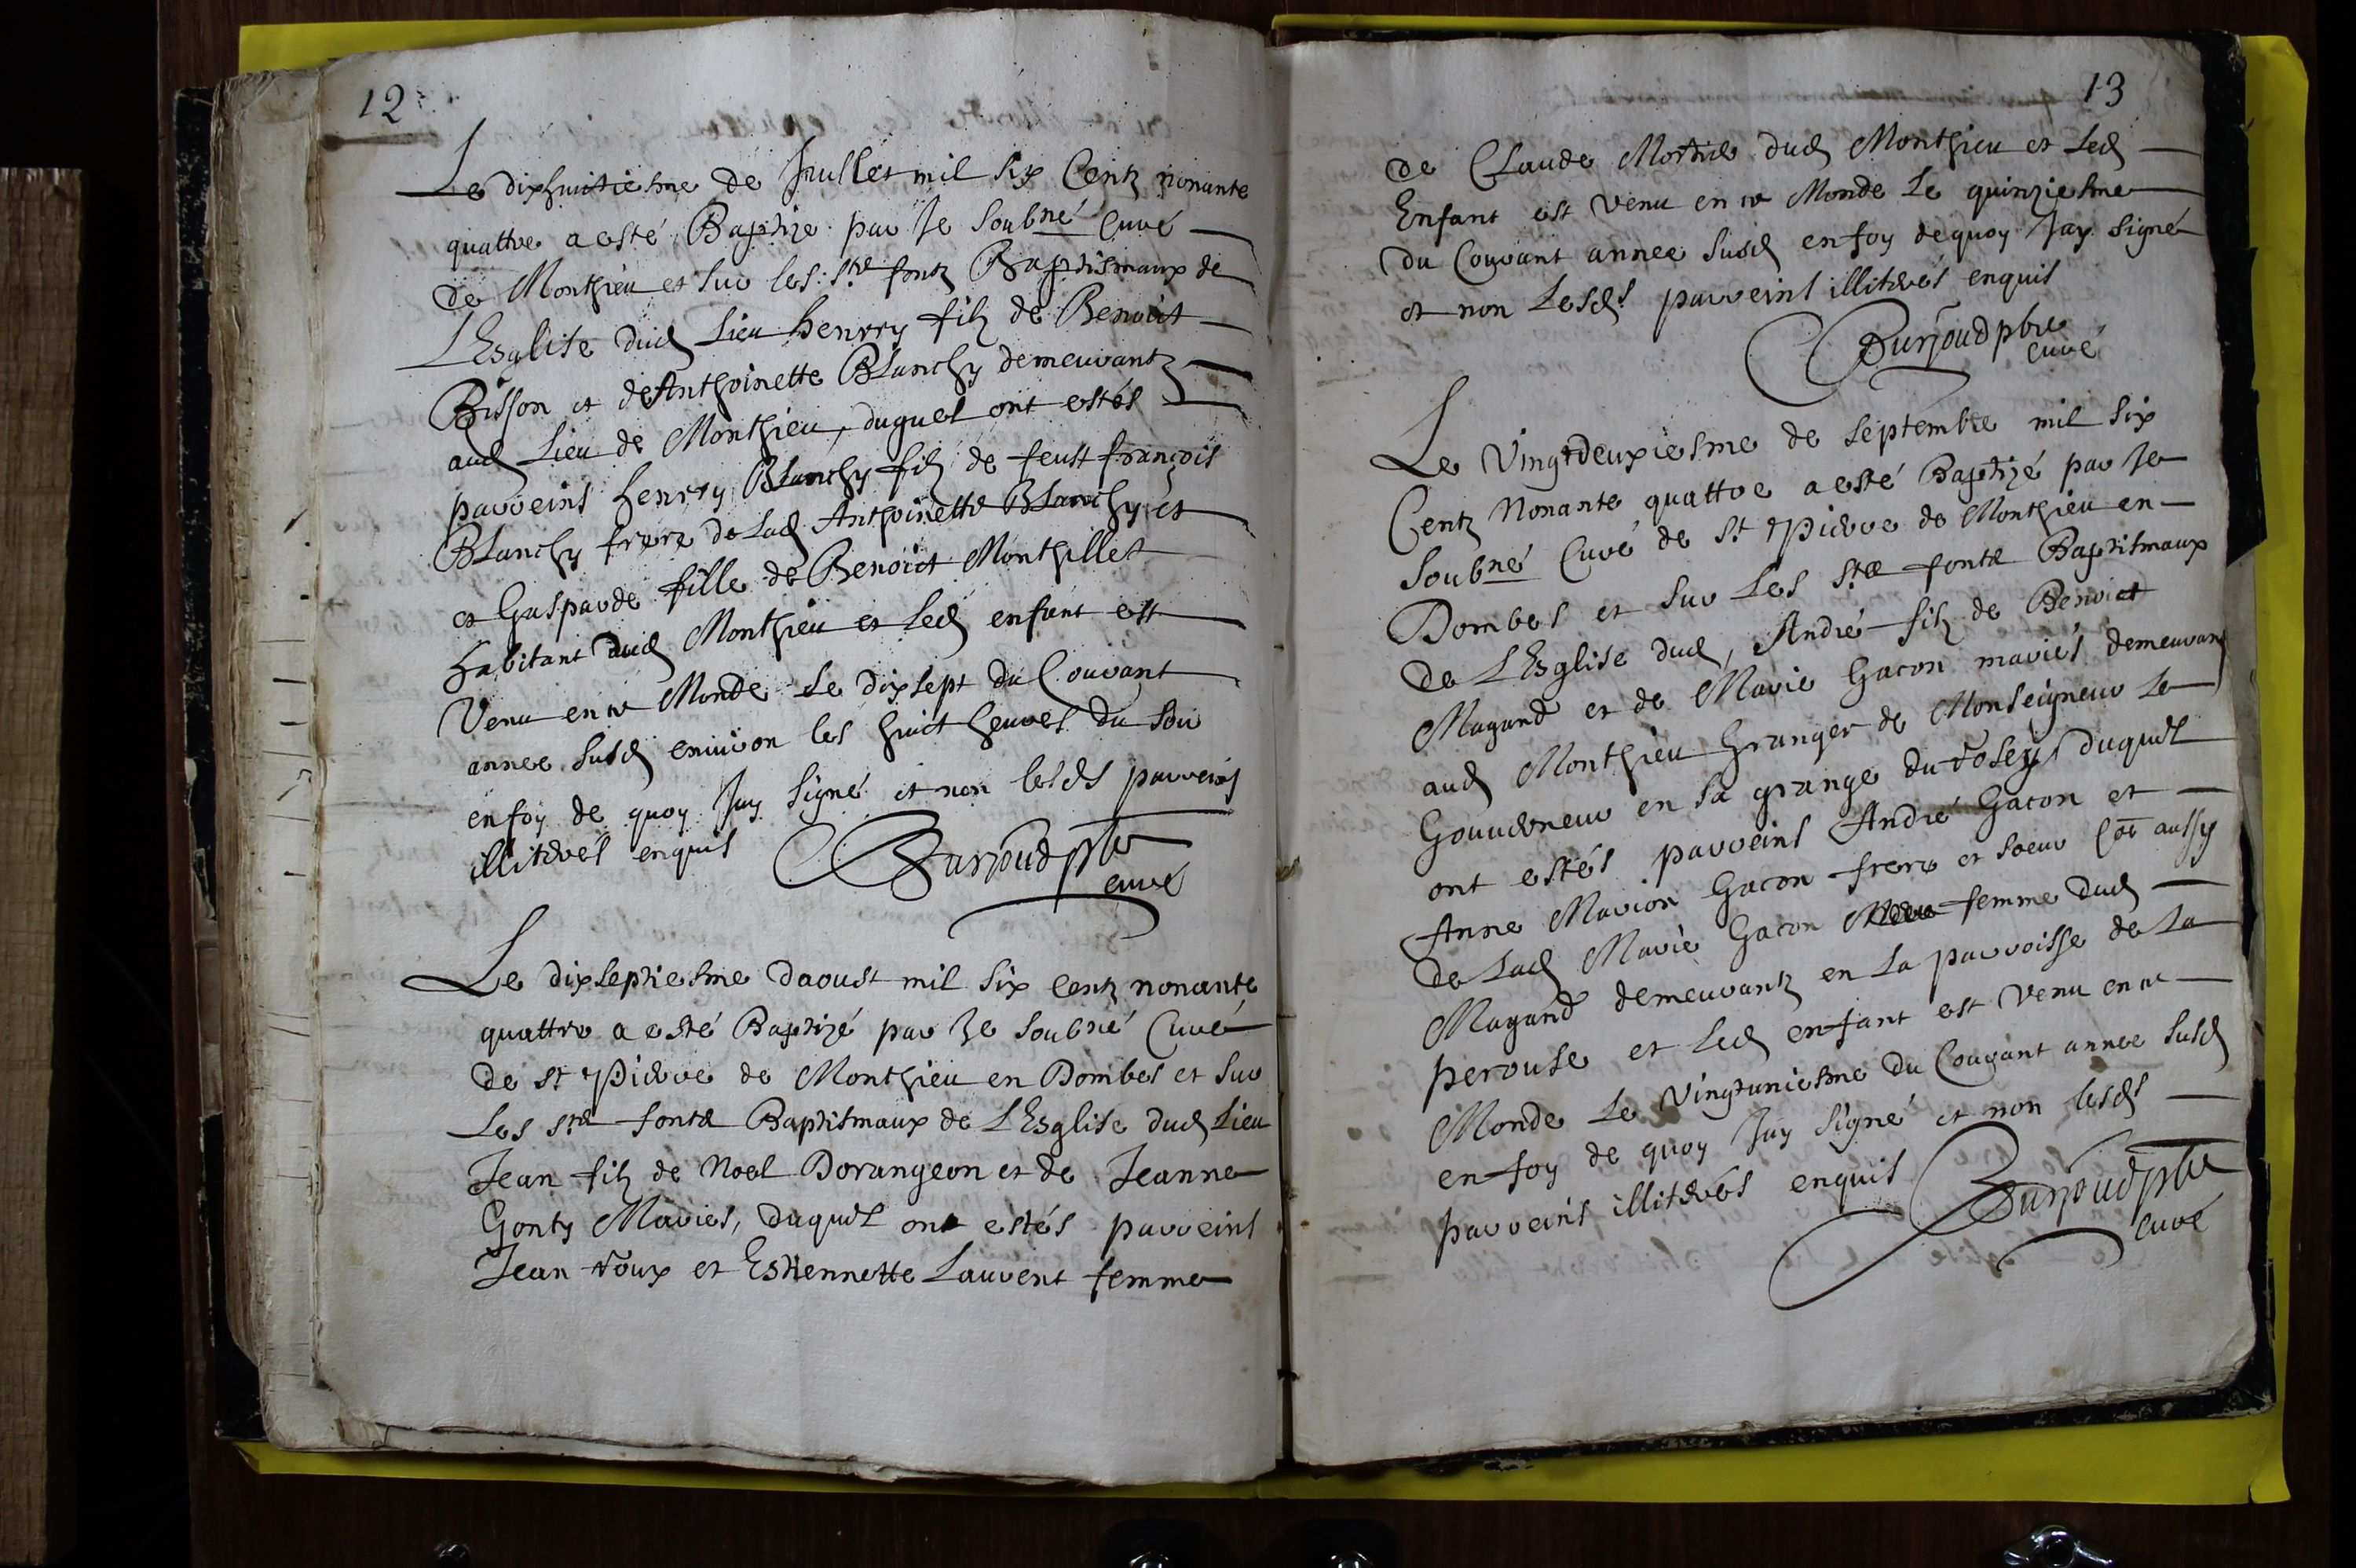 12
Le dixhuitiesme de Juillet mil six Centz nonante
quattre a esté Baptizé par Je soubné Curé
de Monthieu et sur les Sts fontz Baptismaux de
LEsglise dud Lieu henrry filz de Benoict
Bisson et de Anthoinette Blanchy demeurantz
aud Lieu de Monthieu, duquel ont estés
parreins henrry Blanchy filz de feust françois
Blanchy frere de Lad Anthoinette Blanchy et
et Gasparde fille de Benoict Monthillet
habitant dud Monthieu et Led enfant est
Venu en ce Monde le dixsept du Courant
annee susd environ les huict heures du soir
en foy de quoy Jay signé et non lesds parreins
illiterés enquis
pbre
curé
Le dixseptiesme daoust mil six centz nonante
quattre a esté Baptizé par Je soubné Curé
de st Pierre de Monthieu en Dombes et sur
Les sts fonts Baptismaux de LEsglise dud Lieu
Jean filz de Noel Dorangeon et de Jeanne
Gonty Mariés, duquel ont estés parreins
Jean roux et Estiennette Laurent femme
13
de Claude dud Monthieu et Led
Enfant est venu en ce Monde Le quinziesme
du Courant annee susd en foy dequoy Jay signé
et non Lesds parreins illiterés enquis
pbre
curé
Le Vingtdeuxiesme de septembre mil six
Centz Nonante quattre a esté Baptizé par Je
soubné Curé de st Pierre de Monthieu en
Dombes et sur Les sts fonts Baptismaux
de LEsglise dud, André filz de Benoict
Magand et de Marie Gacon mariés demeurant
aud Monthieu Granger de Monseigneur Le
Gouverneur en sa grange du duquel
ont estés parreins André Gacon et
Anne Marion Gacon frere et soeur aussy
de Lad Marie Gacon femme dud
Magand demeurantz en La parroisse de La
perouse et Led enfant est Venu en ce
Monde Le Vingtuniesme du Courant annee susd
en foy de quoy Jay signé et non lesds
parreins illiterés enquis
pbre
curé